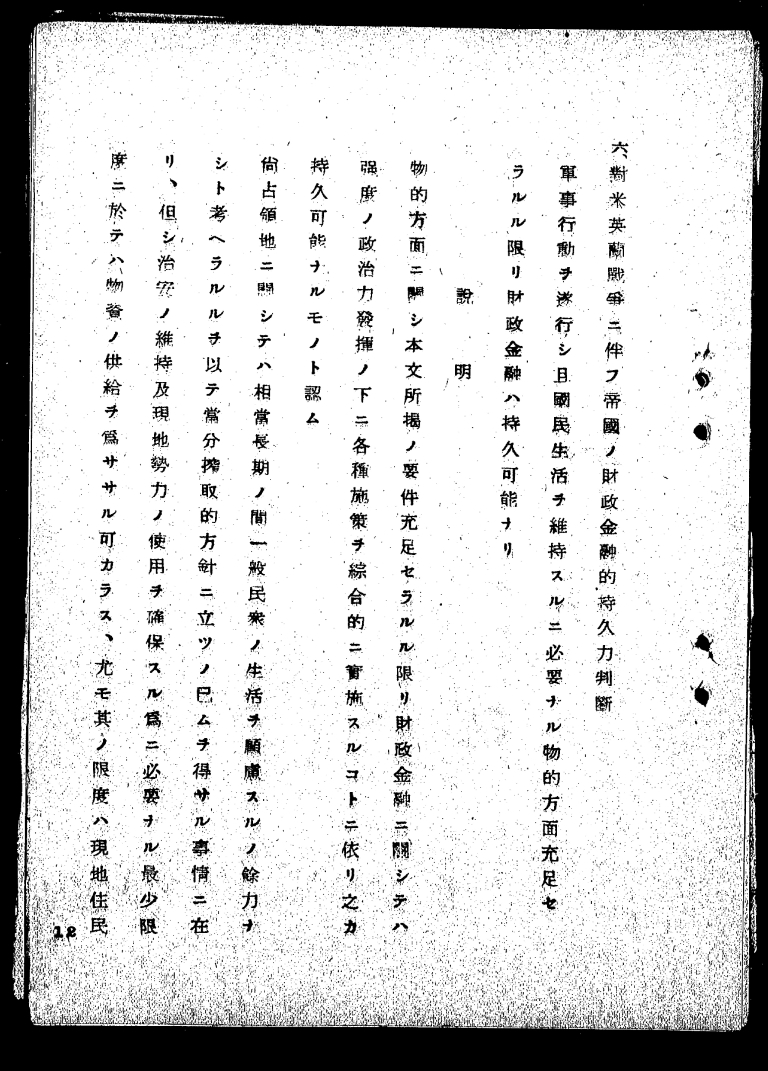 六、對米英蘭戰爭ニ伴フ帝國ノ財政金融的持久力判斷
軍事行動ヲ遂行シ且國民生活ヲ維持スルニ必要ナル物的方面充足セ
ラルル限リ財政金融ハ持久可能ナリ
説明
物的方面ニ關シ本文所揭ノ要件充足セラルル限リ財政金融ニ關シテハ
强度ノ政治力發揮ノ下ニ各種施策ヲ綜合的ニ實施スルコトニ依リ之カ
持久可能ナルモノト認ム
尙占領地ニ關シテハ相當長期ノ間一般民衆ノ生活ヲ顧慮スルノ餘力ナ
シト考ヘラルルヲ以テ當分搾取的方針ニ立ツノ已ムヲ得サル事情ニ在
リ、但シ治安ノ維持及現地勢力ノ使用ヲ確保スル爲ニ必要ナル最少限
度ニ於テハ物資ノ供給ヲ爲ササル可カラス、尤モ其ノ限度ハ現地住民
12